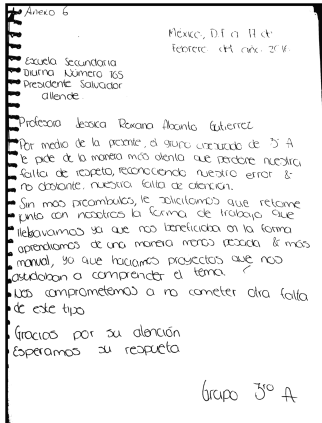 Anexo 6
México, D.F a 11 de
Febrero del año 2016
Escuela Secundaria
Diurna Número 165
Presidente Salvador
allende.
Profesora Jessica Roxana Jacinto Gutierrez
Por medio de la presente, el grupo de 3° A
le pide de la manera más atenta que perdone nuestra
falta de respeto, reconociendo nuestro error &
no obstante, nuestra falta de atención.
Sin mas preambulos, le solicitamos que retome
junto con nosotros la forma de trabajo que
llebavamos ya que nos beneficiaba en la forma
aprendiamos de una manera menos pesada & más
manual, ya que haciamos proyectos que nos
ayudaban a comprender el tema.
Nos comprometemos a no cometer otra falta
de este tipo
Gracias por su atención
Esperamos su respueta
Grupo 3ro A